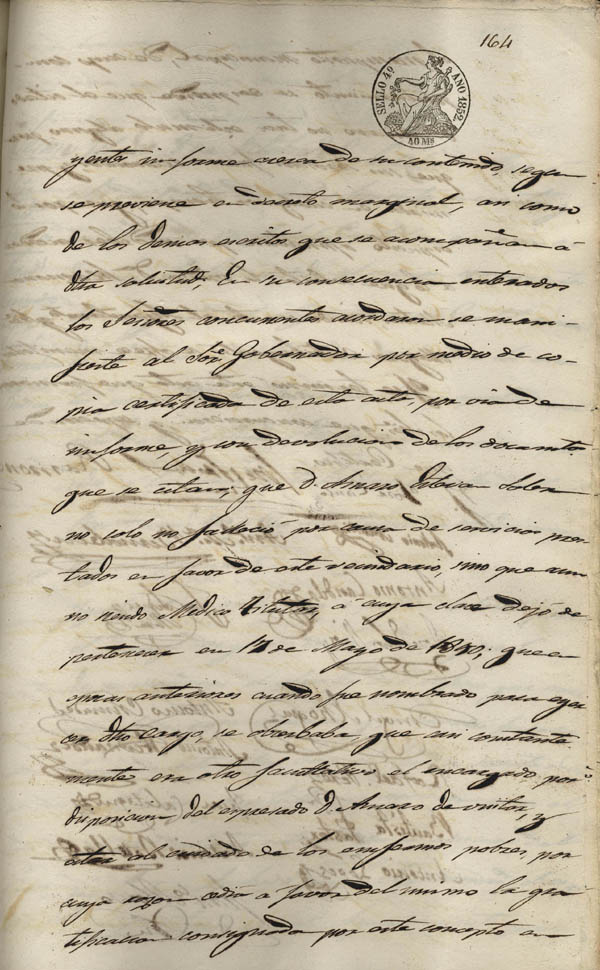 164
SELLO 4º AÑO 1852.
40 Ms
yente informe acerca de su contenido, segun
se previene en decreto marginal, asi como
de los demas escritos que se acompañan á
dha solicitud, En su consecuencia enterados
los Señores concurrentes acordaron se mani-
fieste al Sor Gobernador por medio de co-
pia certificada de esta acta, por via de
informe, y con devolucion de los documtos
que se citan; que D. Amaro
no solo no falleció por causa de servicios pres-
tados en favor de este vecindario, sino que aun
no siendo Medico titular, a cuya clase dejó de
pertenecer en de Mayo de ; que en
epocas anteriores cuando fue nombrado para ejer
cer dho cargo, se observaba que casi constante
mente era otro facultativo el encargado por
disposicion del espresado D. Amaro de visitar, y
al cuidado de los enfermos pobres, por
cuya razon cedia a favor del mismo la gra
tificacion consignada por este concepto en